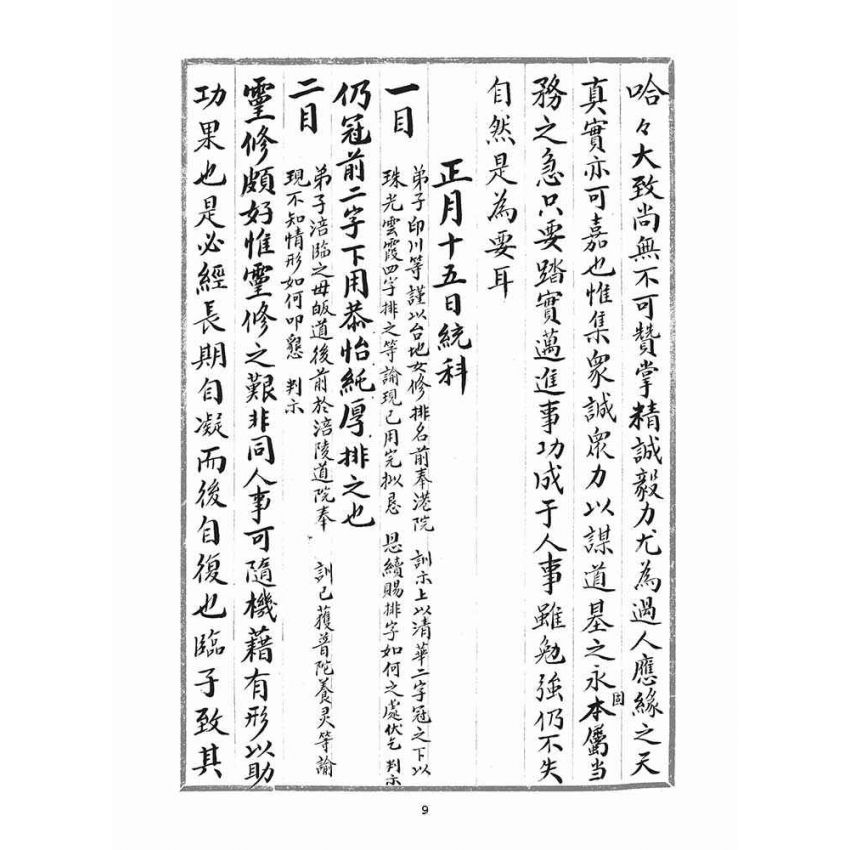 哈々大致尚無不可贊掌精誠毅力尤為過人應緣之天
真實亦可嘉也惟集眾誠眾力以謀道基之永固本屬當
務之急只要踏實邁進事功成于人事雖勉強仍不失
自然是為要耳
正月十五日統科
一目
弟子印川等謹以台地女修排名前奉港院 訓示上以清華二字冠之下以
珠光雲霞四字排之等諭現已用完拟恳 恩續賜排字如何之處伏乞 判示
仍冠前二字下用恭怡純厚排之也
二目
弟子涪臨之母皈道後前於涪陵道院奉 訓已獲普陀養灵等諭
現不知情形如何叩懇 判示
靈修頗好惟靈修之艱非同人事可隨機藉有形以助
功果也是必經長期自凝而後自復也臨子致其
9